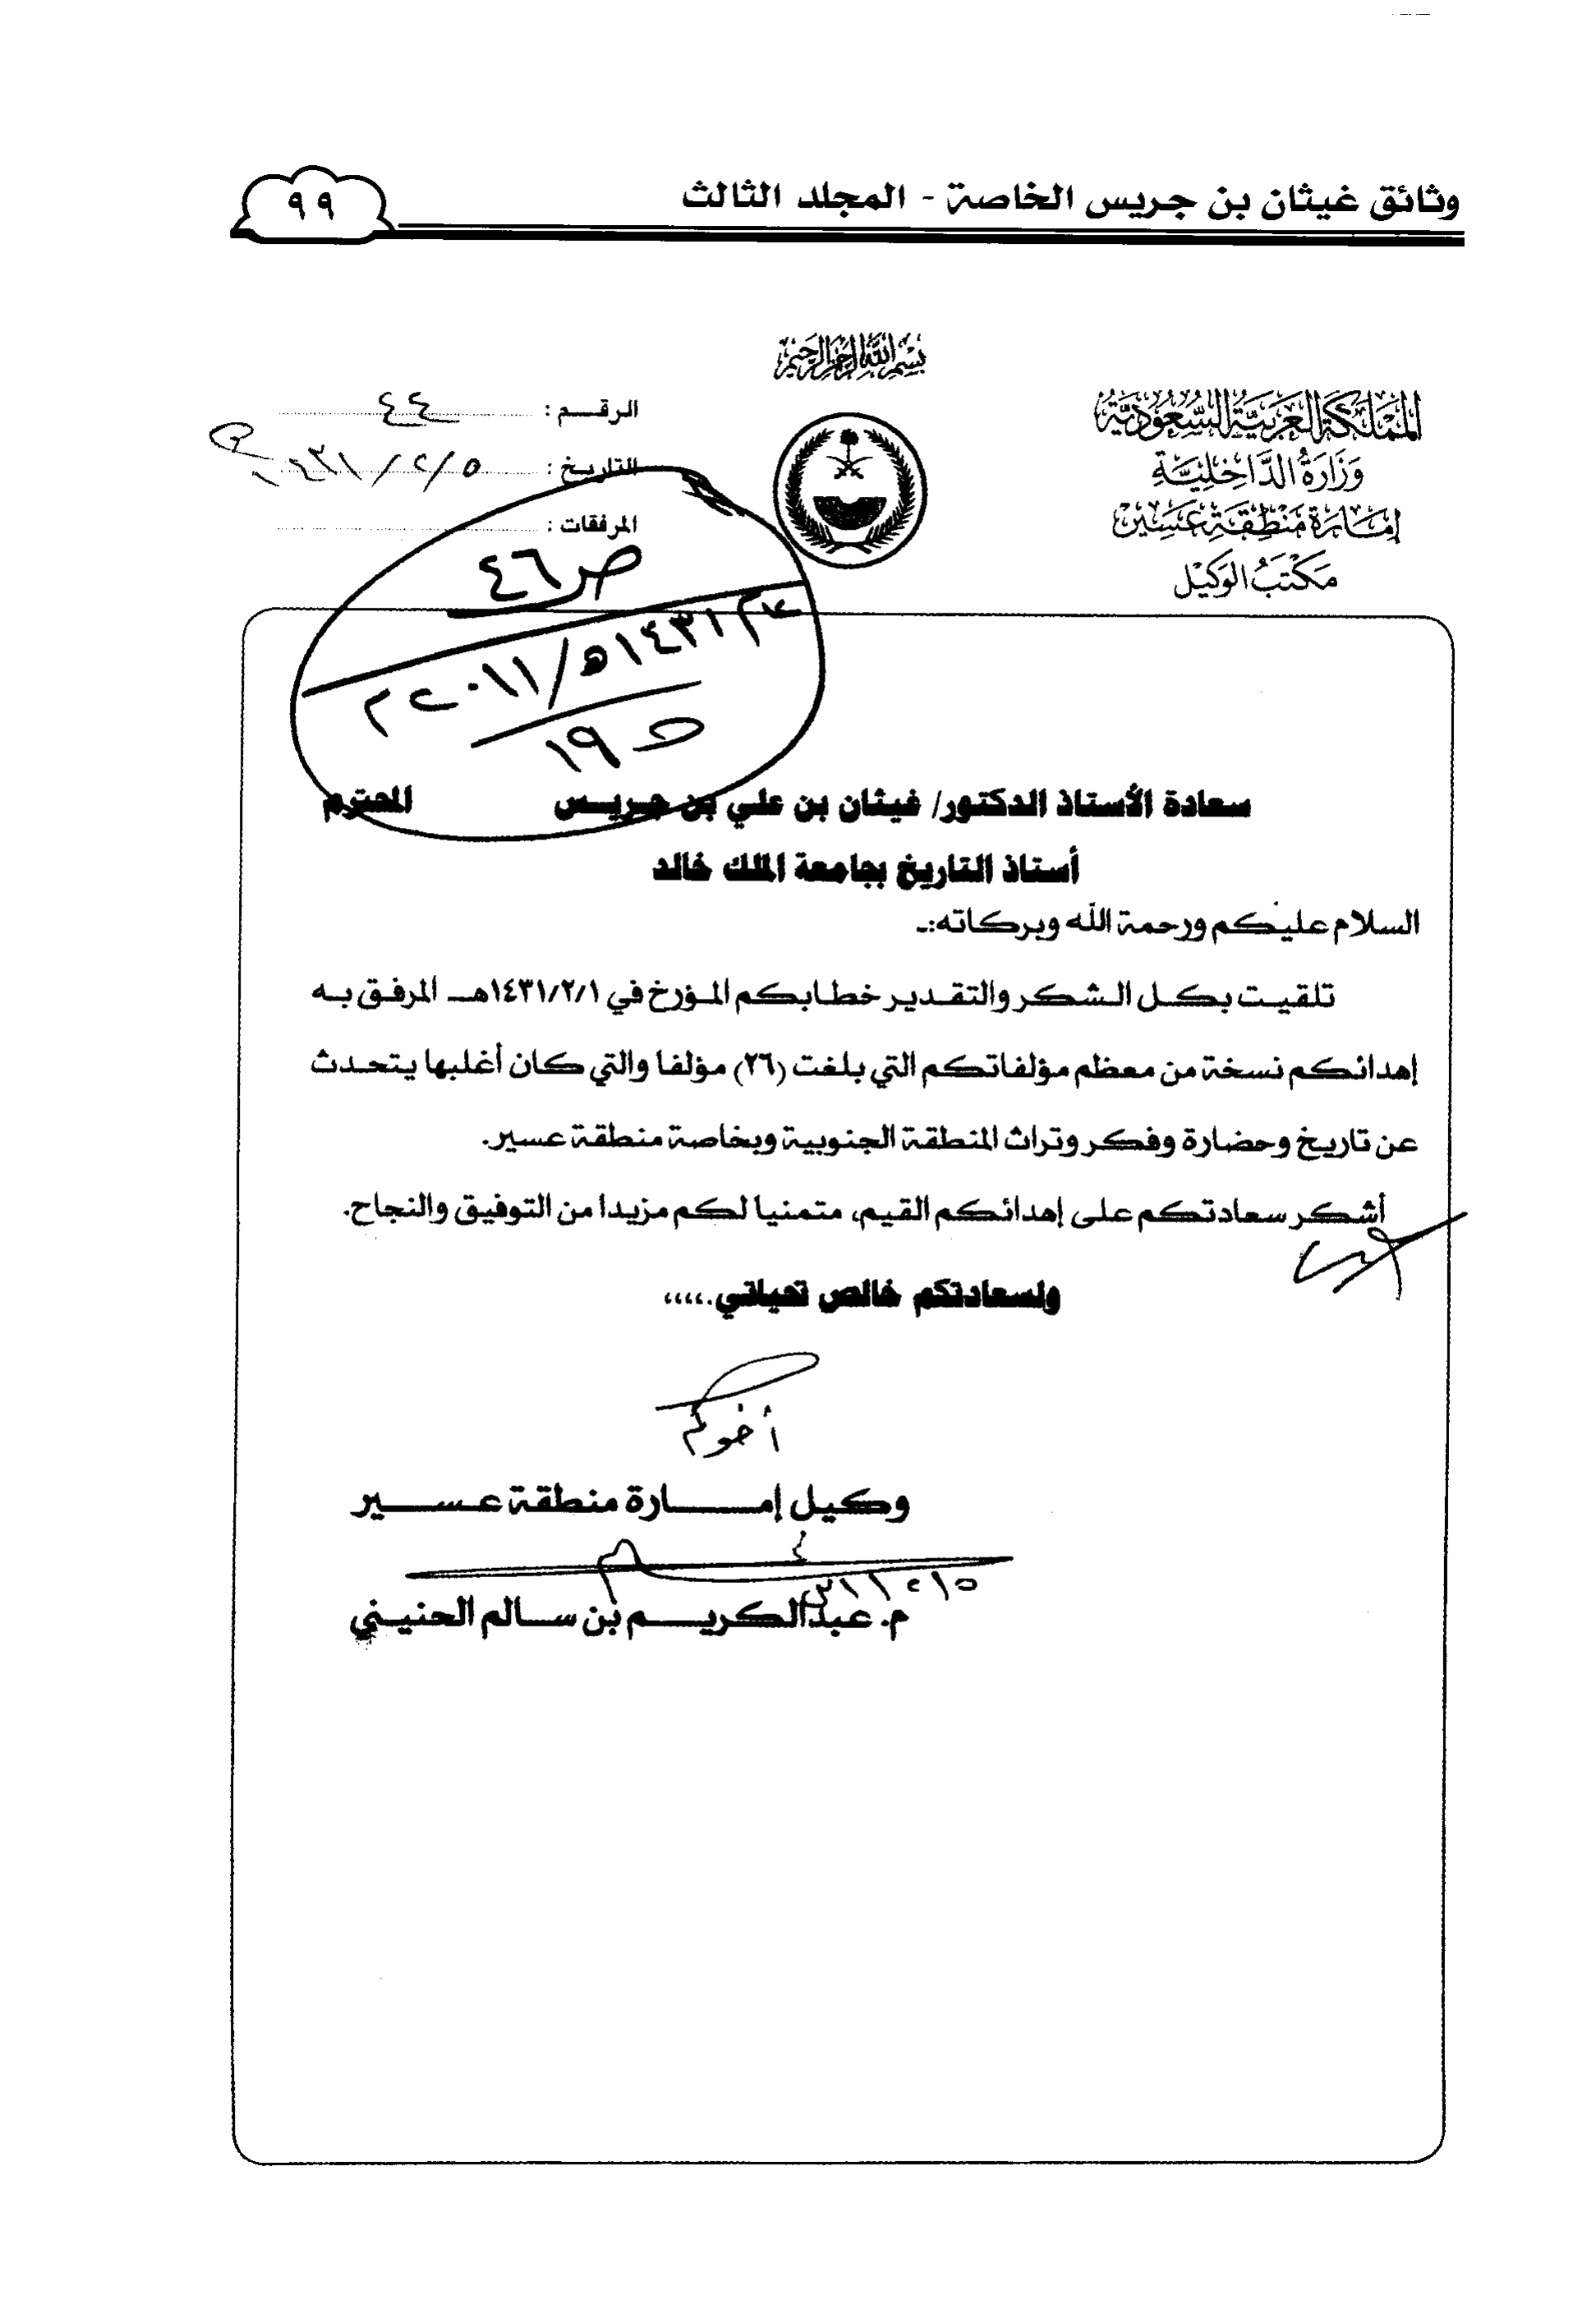 وثائق غيثان بن جريس الخاصة - المجلد الثالث
٩٩
بسم الله الرحمن الرحيم
المملكة العربية السعودية
وزارة الداخلية
إمارة منطقة عسير
مكتب الوكيل
الرقــم : ٤٤
التاريخ : ٥/٢/١٤٣١
المرفقات :
ص ٤٦
عام ١٤٣١هـ/٢٠١١م
١٩
سعادة الأستاذ الدكتور/ غيثان بن علي بن جريس المحترم
أستاذ التاريخ بجامعة الملك خالد
السلام عليكم ورحمة الله وبركاته:ـ
تلقيت بكل الشكر والتقدير خطابكم المؤرخ في ١٤٣١/٢/١هـ المرفق به
إهدائكم نسخة من معظم مؤلفاتكم التي بلغت (٢٦) مؤلفا والتي كان أغلبها يتحدث
عن تاريخ وحضارة وفكر وتراث المنطقة الجنوبية وبخاصة منطقة عسير.
أشكر سعادتكم على إهدائكم القيم، متمنيا لكم مزيدا من التوفيق والنجاح.
ولسعادتكم خالص تحياتي.،،،،،
أخوكم
وكيل إمارة منطقة عسير
م. عبدالكريم بن سالم الحنيني